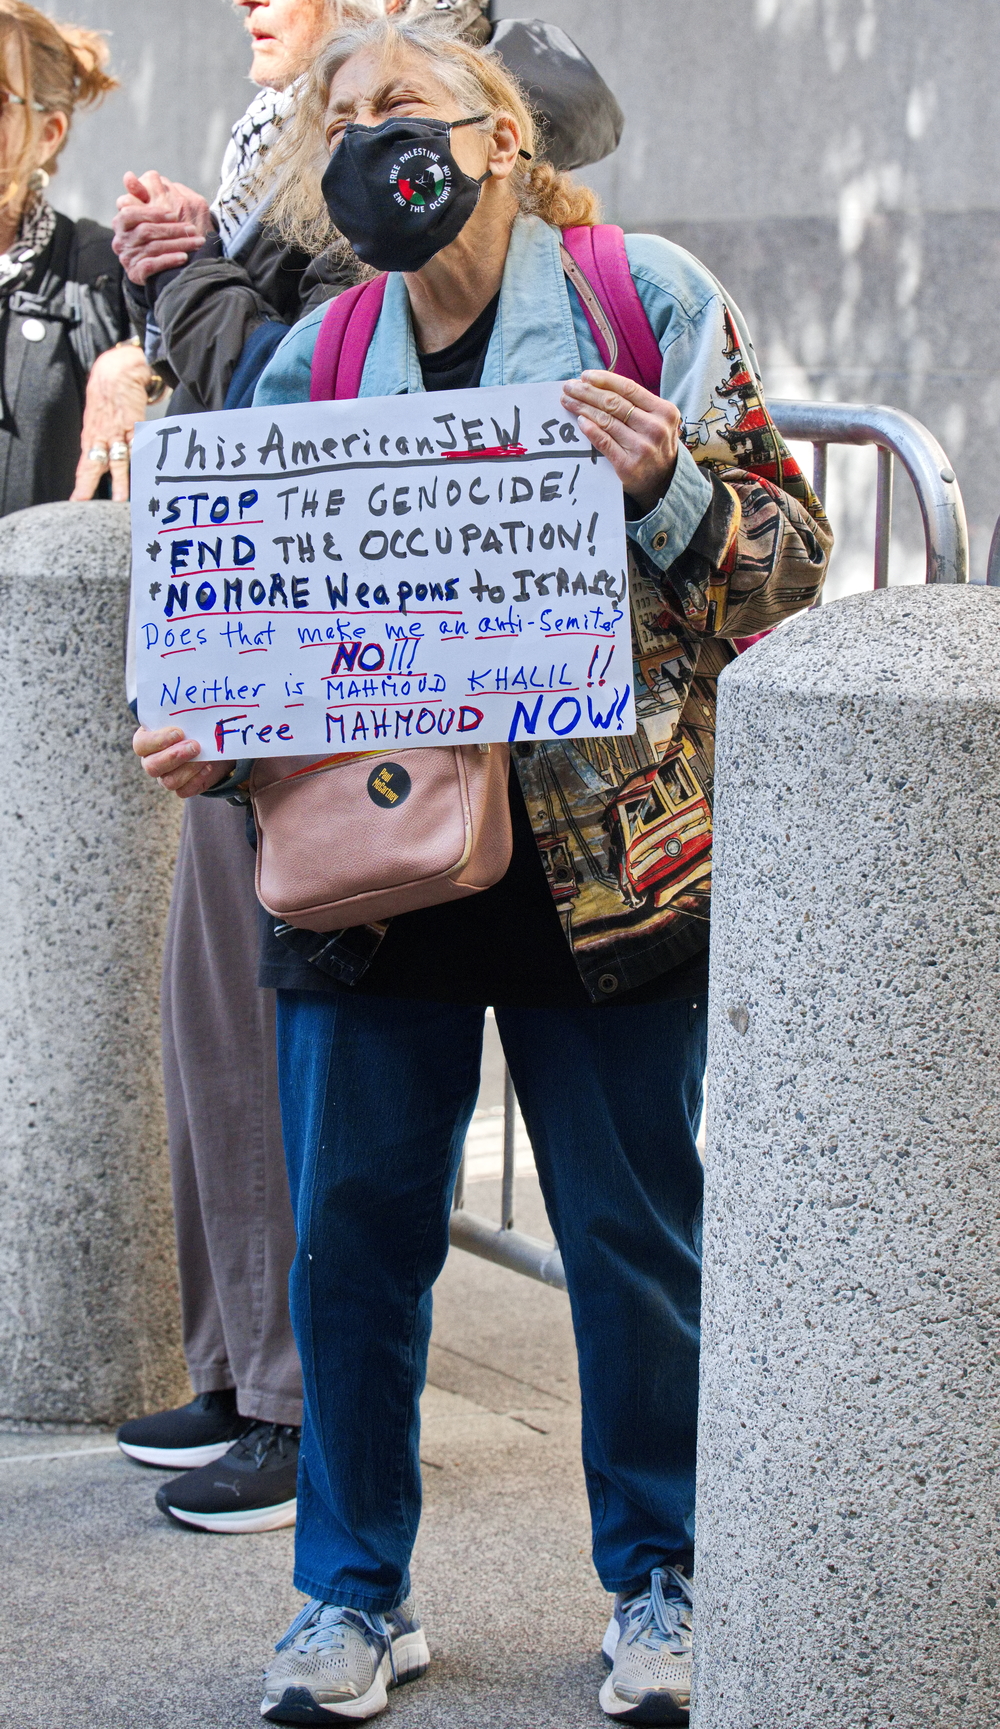 FREE PALESTINE NOW!
END THE OCCUPATION
This American JEW sa
*STOP THE GENOCIDE!
*END THE OCCUPATION!
*NO MORE Weapons to ISRAEL)
Does that make me an anti-Semite?
NO!!!
Neither is MAHMOUD KHALIL!!
Free MAHMOUD NOW!
Paul
McCartney